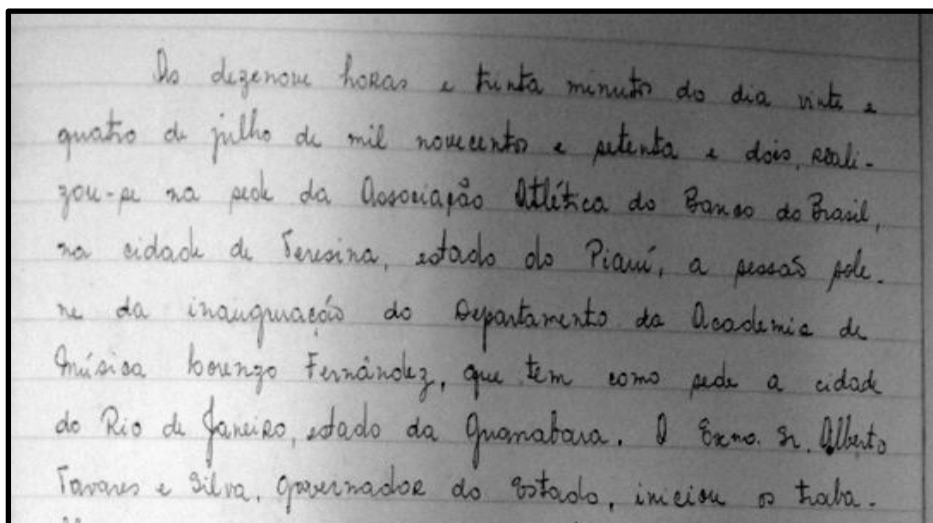 As dezenove horas e trinta minutos do dia vinte e
quatro de julho de mil novecentos e setenta e dois, reali-
zou-se na sede da Associação Atlética do Banco do Brasil,
na cidade de Teresina, estado do Piauí, a sessão sole-
ne da inauguração do Departamento da Academia de
Música Lorenzo Fernândez, que tem como sede a cidade
do Rio de Janeiro, estado da Guanabara. O Exmo. Sr. Alberto
Tavares e Silva, Governador do Estado, iniciou os traba-